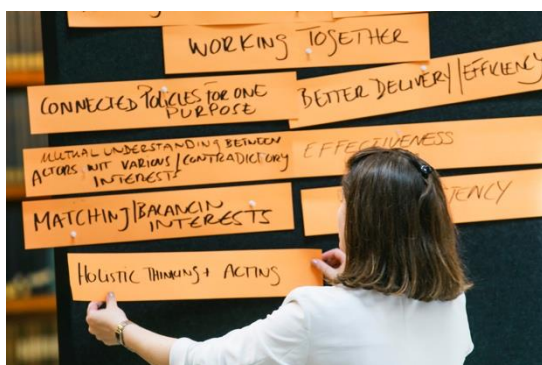 WORKING TOGETHER
CONNECTED POLICIES FOR ONE
PURPOSE
BETTER DELIVERY/EFFICIENCY
MUTUAL UNDERSTANDING BETWEEN
ACTORS WIT VARIOUS/CONTRADICTORY
INTERESTS
EFFECTIVENESS
MATCHING/BALANCIN
INTERESTS
HOLISTIC THINKING + ACTING